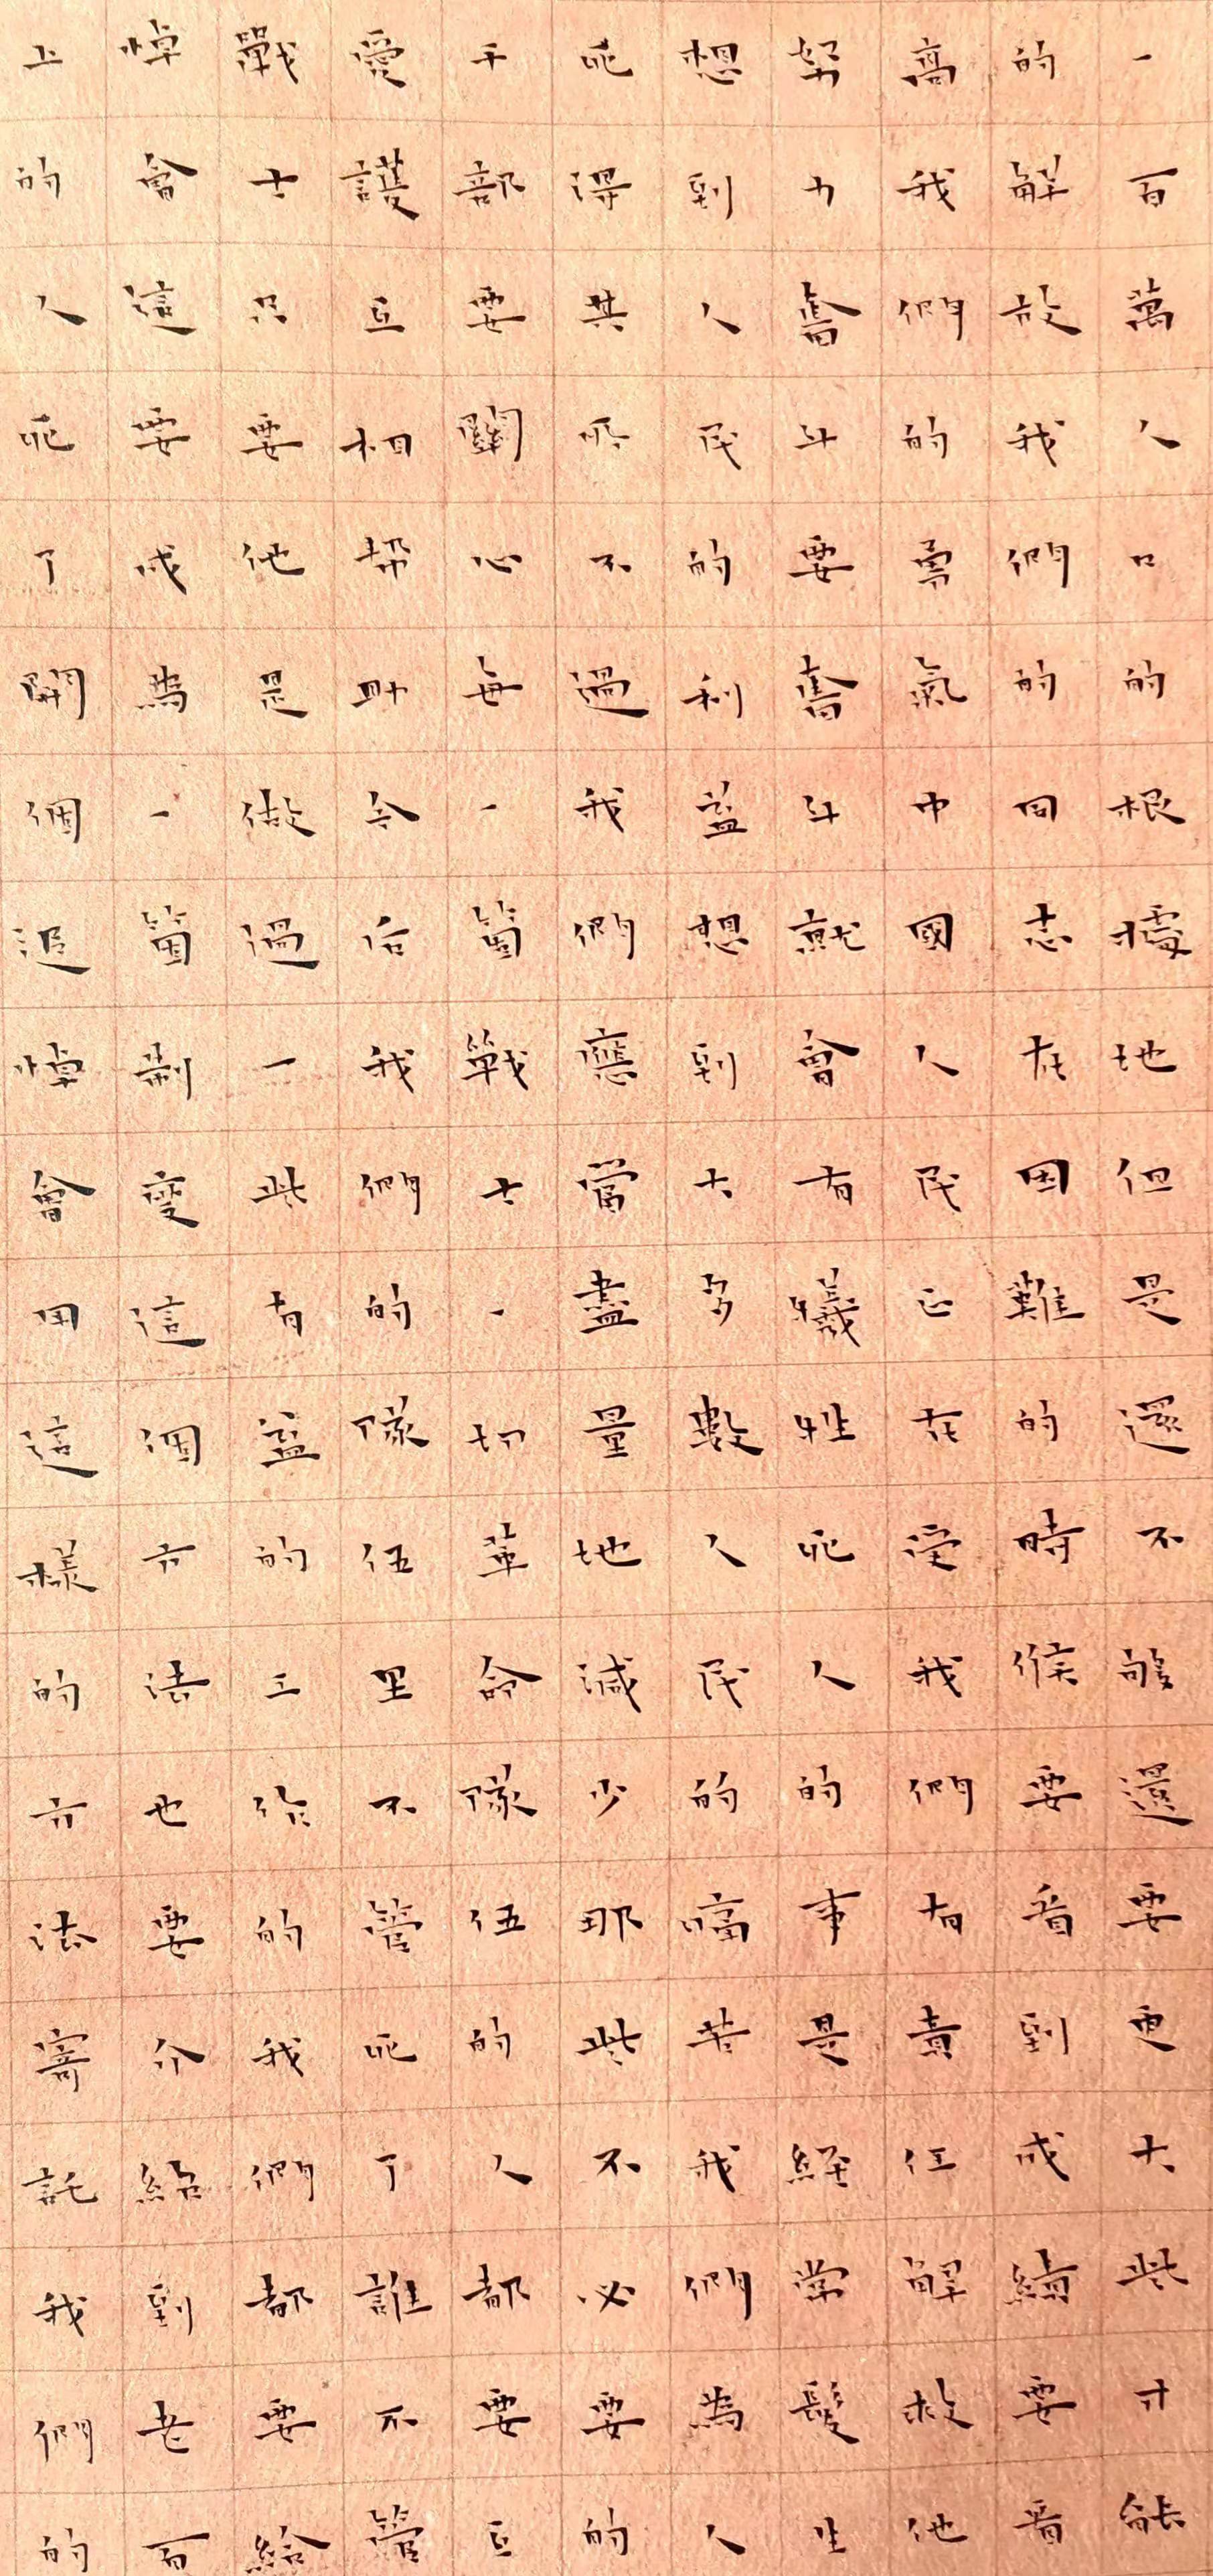 一百萬人口的根據地但是還不夠還要更大些才能
的解放我們的同志在困難的時候要看到成績要看
高我們的勇氣中國人民正在受我們有責任解救他
努力奮斗要奮斗就會有犧牲死人的事是經常髮生
想到人民的利益想到大多數人民的苦我們為人
死得其所不過我們應當盡量地減少那些不必要的
干部要關心每一箇戰士一切革命隊伍的人都要互
愛護互相幫助今后我們的隊伍里不管死了誰不管
戰士只要他是做過一些有益的工作的我們都要給
悼會這要成為一箇制度這個方法也要介紹到老百
上的人死了開個追悼會用這樣的方法寄託我們的